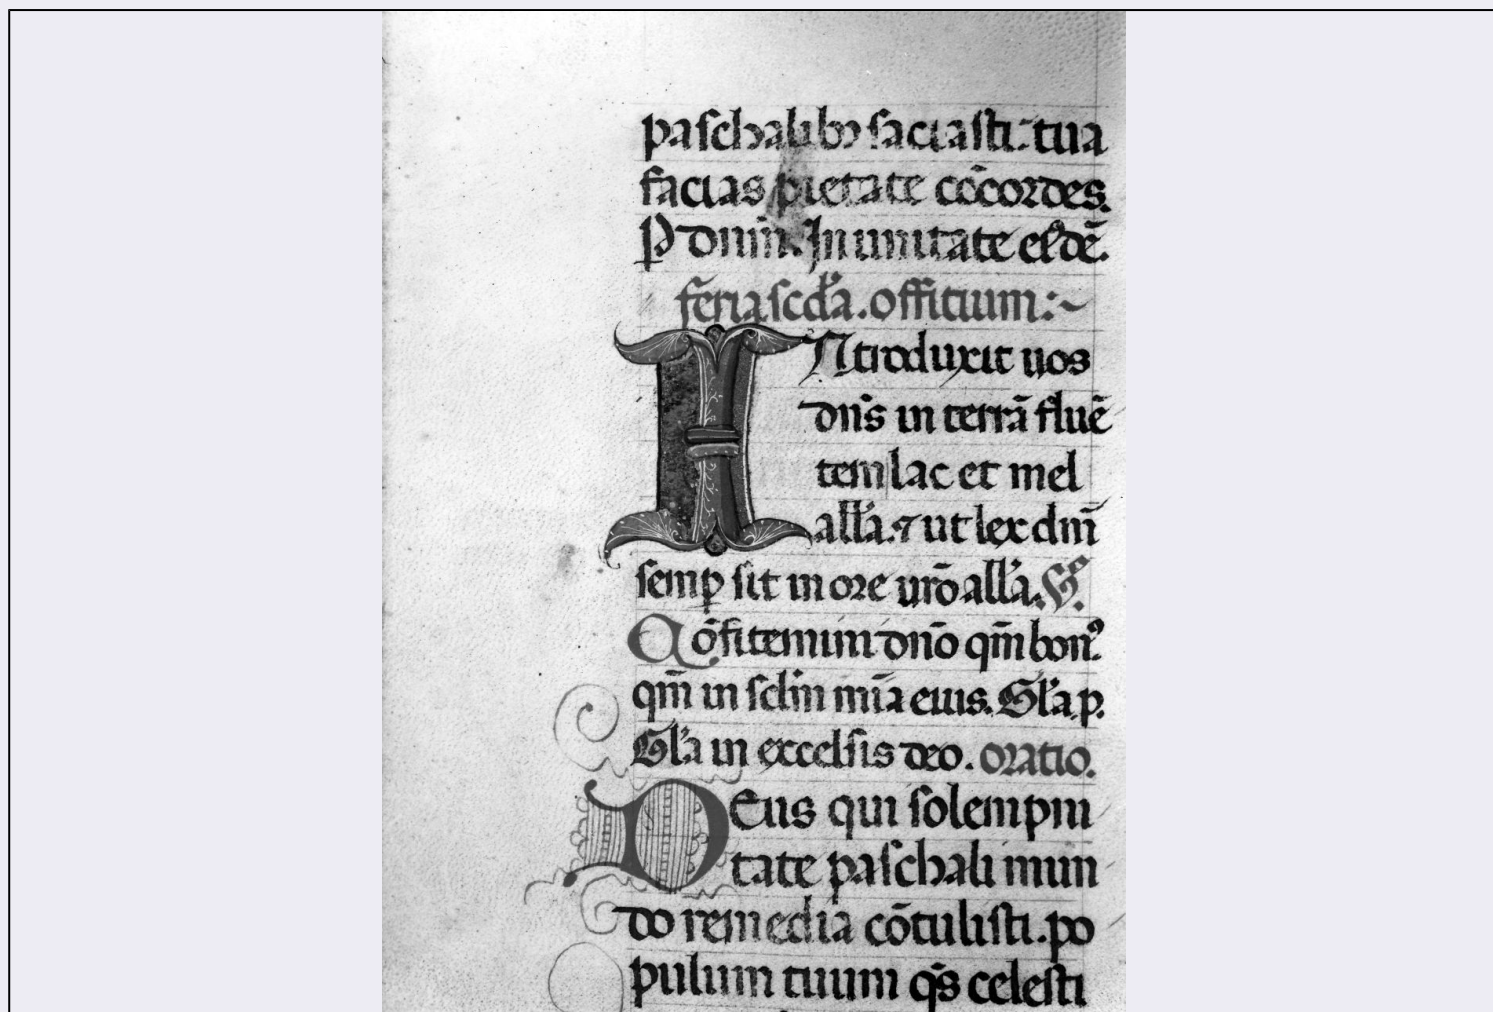 paschalibꝫ saciasti. tua
facias pietate cōcordes.
P dnm̄. In unitate eiꝰdē.
feria scd'a. offitium:~
INtroduxit uos
dn̄s in terrā fluē
tem lac et mel
all'a. ⁊ ut lex dn̄i
semꝑ sit in ore ur̄o all'a. p̄s.
Cōfitemini dn̄o qm̄ bonꝰ.
qm̄ in sclm̄ mīa eius. Gl'a p.
Gl'a in excelsis deo. oratio.
DEus qui solempni
tate paschali mun
do remedia cōtulisti. po
pulum tuum qs̄ celesti